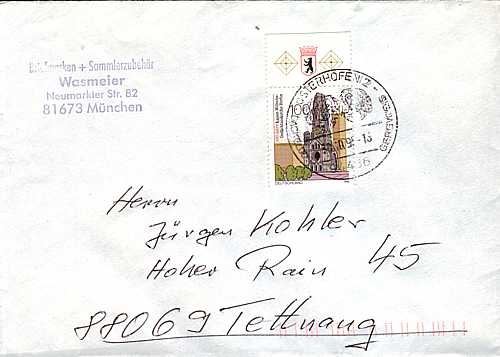 Briefmarken + Sammlerzubehör
Wasmeier
Neumarkter Str. 82
81673 München
OSTERHOFEN
100
DEUTSCHLAND
Herrn
Jürgen Kohler
Hoher Rain 45
88069 Tettnang